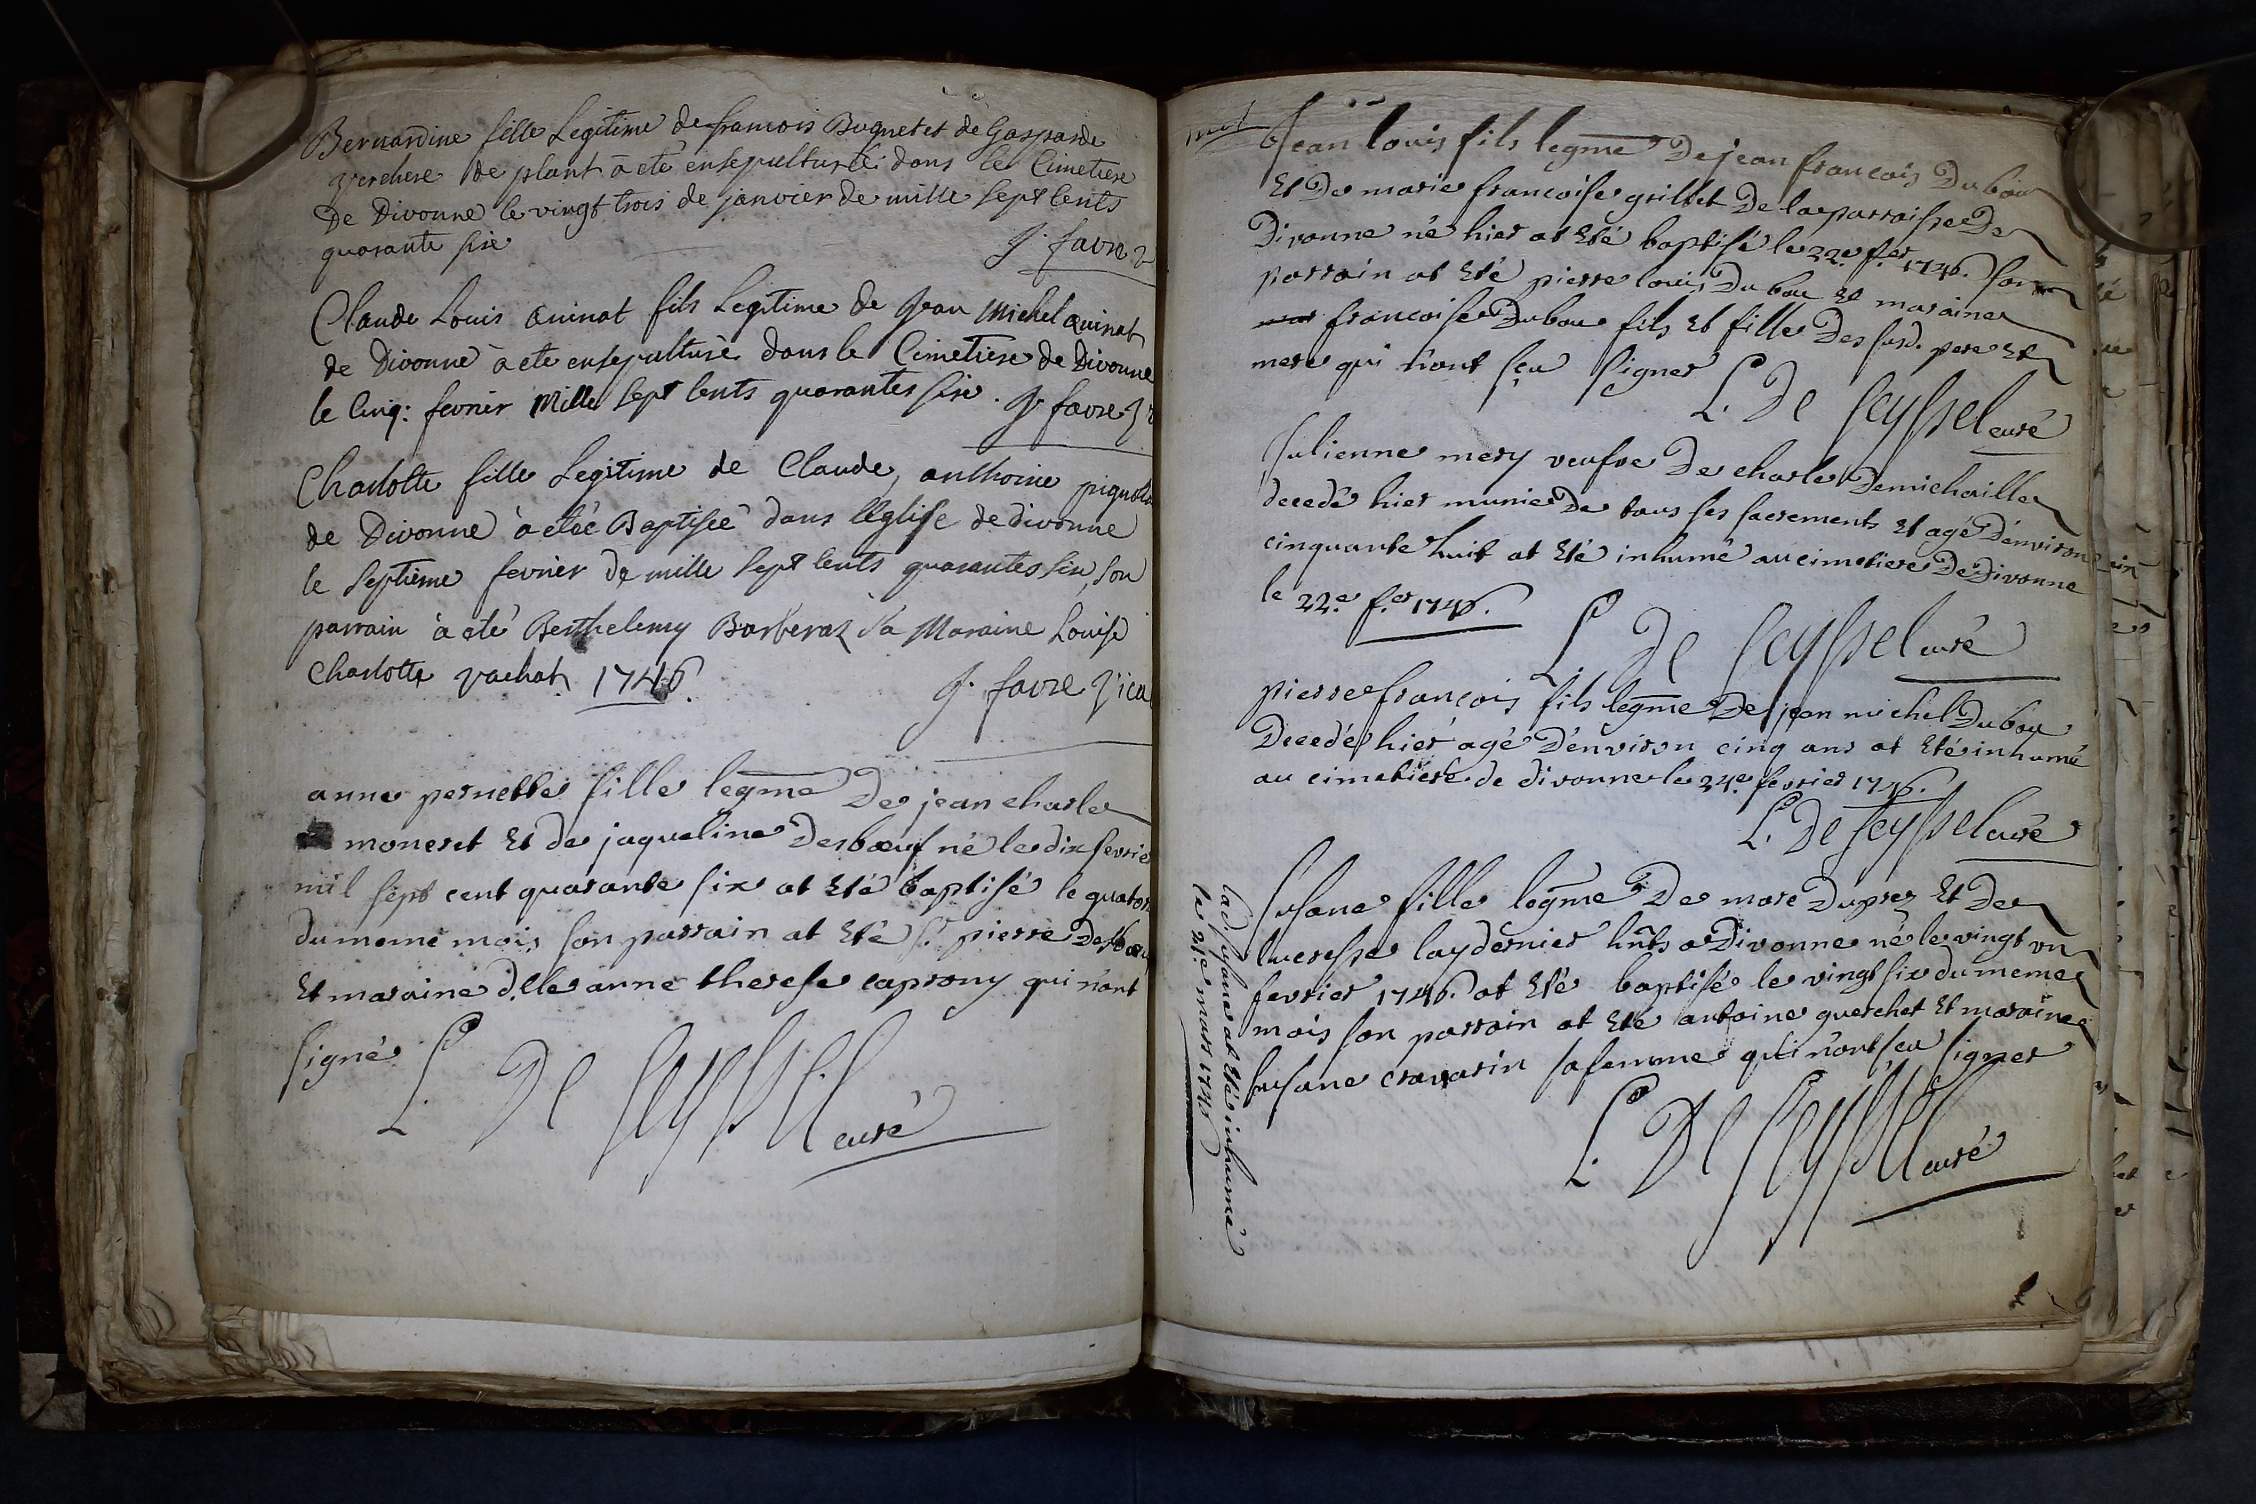 Bernardine fille Legitime de francois Buquet et de Gasparde
verchere de plant à eté ensepulturée dans le Cimetiere
de Divonne le vingt trois de janvier de mille sept cents
quarante six
J. favre
Claude Louis quinat fils Legitime de Jean Michel quinat
de Divonne à eté ensepulturé dans le Cimetiere de Divonne
le Cinq: fevrier Mille sept cents quarantes six. J. favre
Charlotte fille Legitime de Claude, anthoine
de Divonne à etéé Baptisée dans l'Eglise de divonne
le septieme fevrier de mille sept cents quarantes six, son
parrain à eté Berthelemy Barberaz sa Maraine Louise
Charlotte vachat 1746.
J. favre vica
anne pernette fille legme De jean charle
moneret Et de jaqueline Desbœuf né le dix fevrie
mil sept cent quarante six at Eté baptisé le quator
du meme mois son parrain at Eté Sr. pierre Desbœu
Et maraine d.lle anne therese caprony qui n'ont
signé
L. De Seyssel curé
Jean louis fils legme De jean francois Dubou
Et De marie francoise grillet De la parroisse De
Divonne né hier at Eté baptisé le 22e. f.er 1746. son
parrain at Eté pierre louis Dubou et maraine
francoise Dubou fils Et fille Des susd. pere Et
mere qui n'ont sçu signer
L. De Seyssel curé
Julienne mery veufve De charle Demichaille
decedé hier munie De tous ses sacrements Et agé D'environ
cinquante huit at Eté inhumé au cimetiere De Divonne
le 22.e f.er 1746.
L. De Seyssel curé
pierre françois fils legme De jean michel Dubou
Decedé hier agé D'environ cinq ans at Eté inhumé
au cimetiere de divonne le 24.e fevrier 1746.
L. De Seyssel curé
Susane fille legme De marc Duprez Et De
lucresse laydernier hnts a Divonne né le vingt un
fevrier 1746. at Eté baptisé le vingt six du meme
mois son parrain at Eté antoine querchet Et maraine
susane cravarin sa femme qui n'ont sçu signer
L. De Seyssel curé
lad. susane at Eté inhumé
le 21.e mars 1746